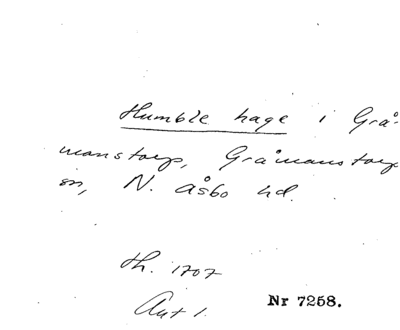 Humble hage i Grå-
manstorp, Gråmanstorp
sn, N. Åsbo hd.
th. 1707
Aut 1.
Nr 7258.